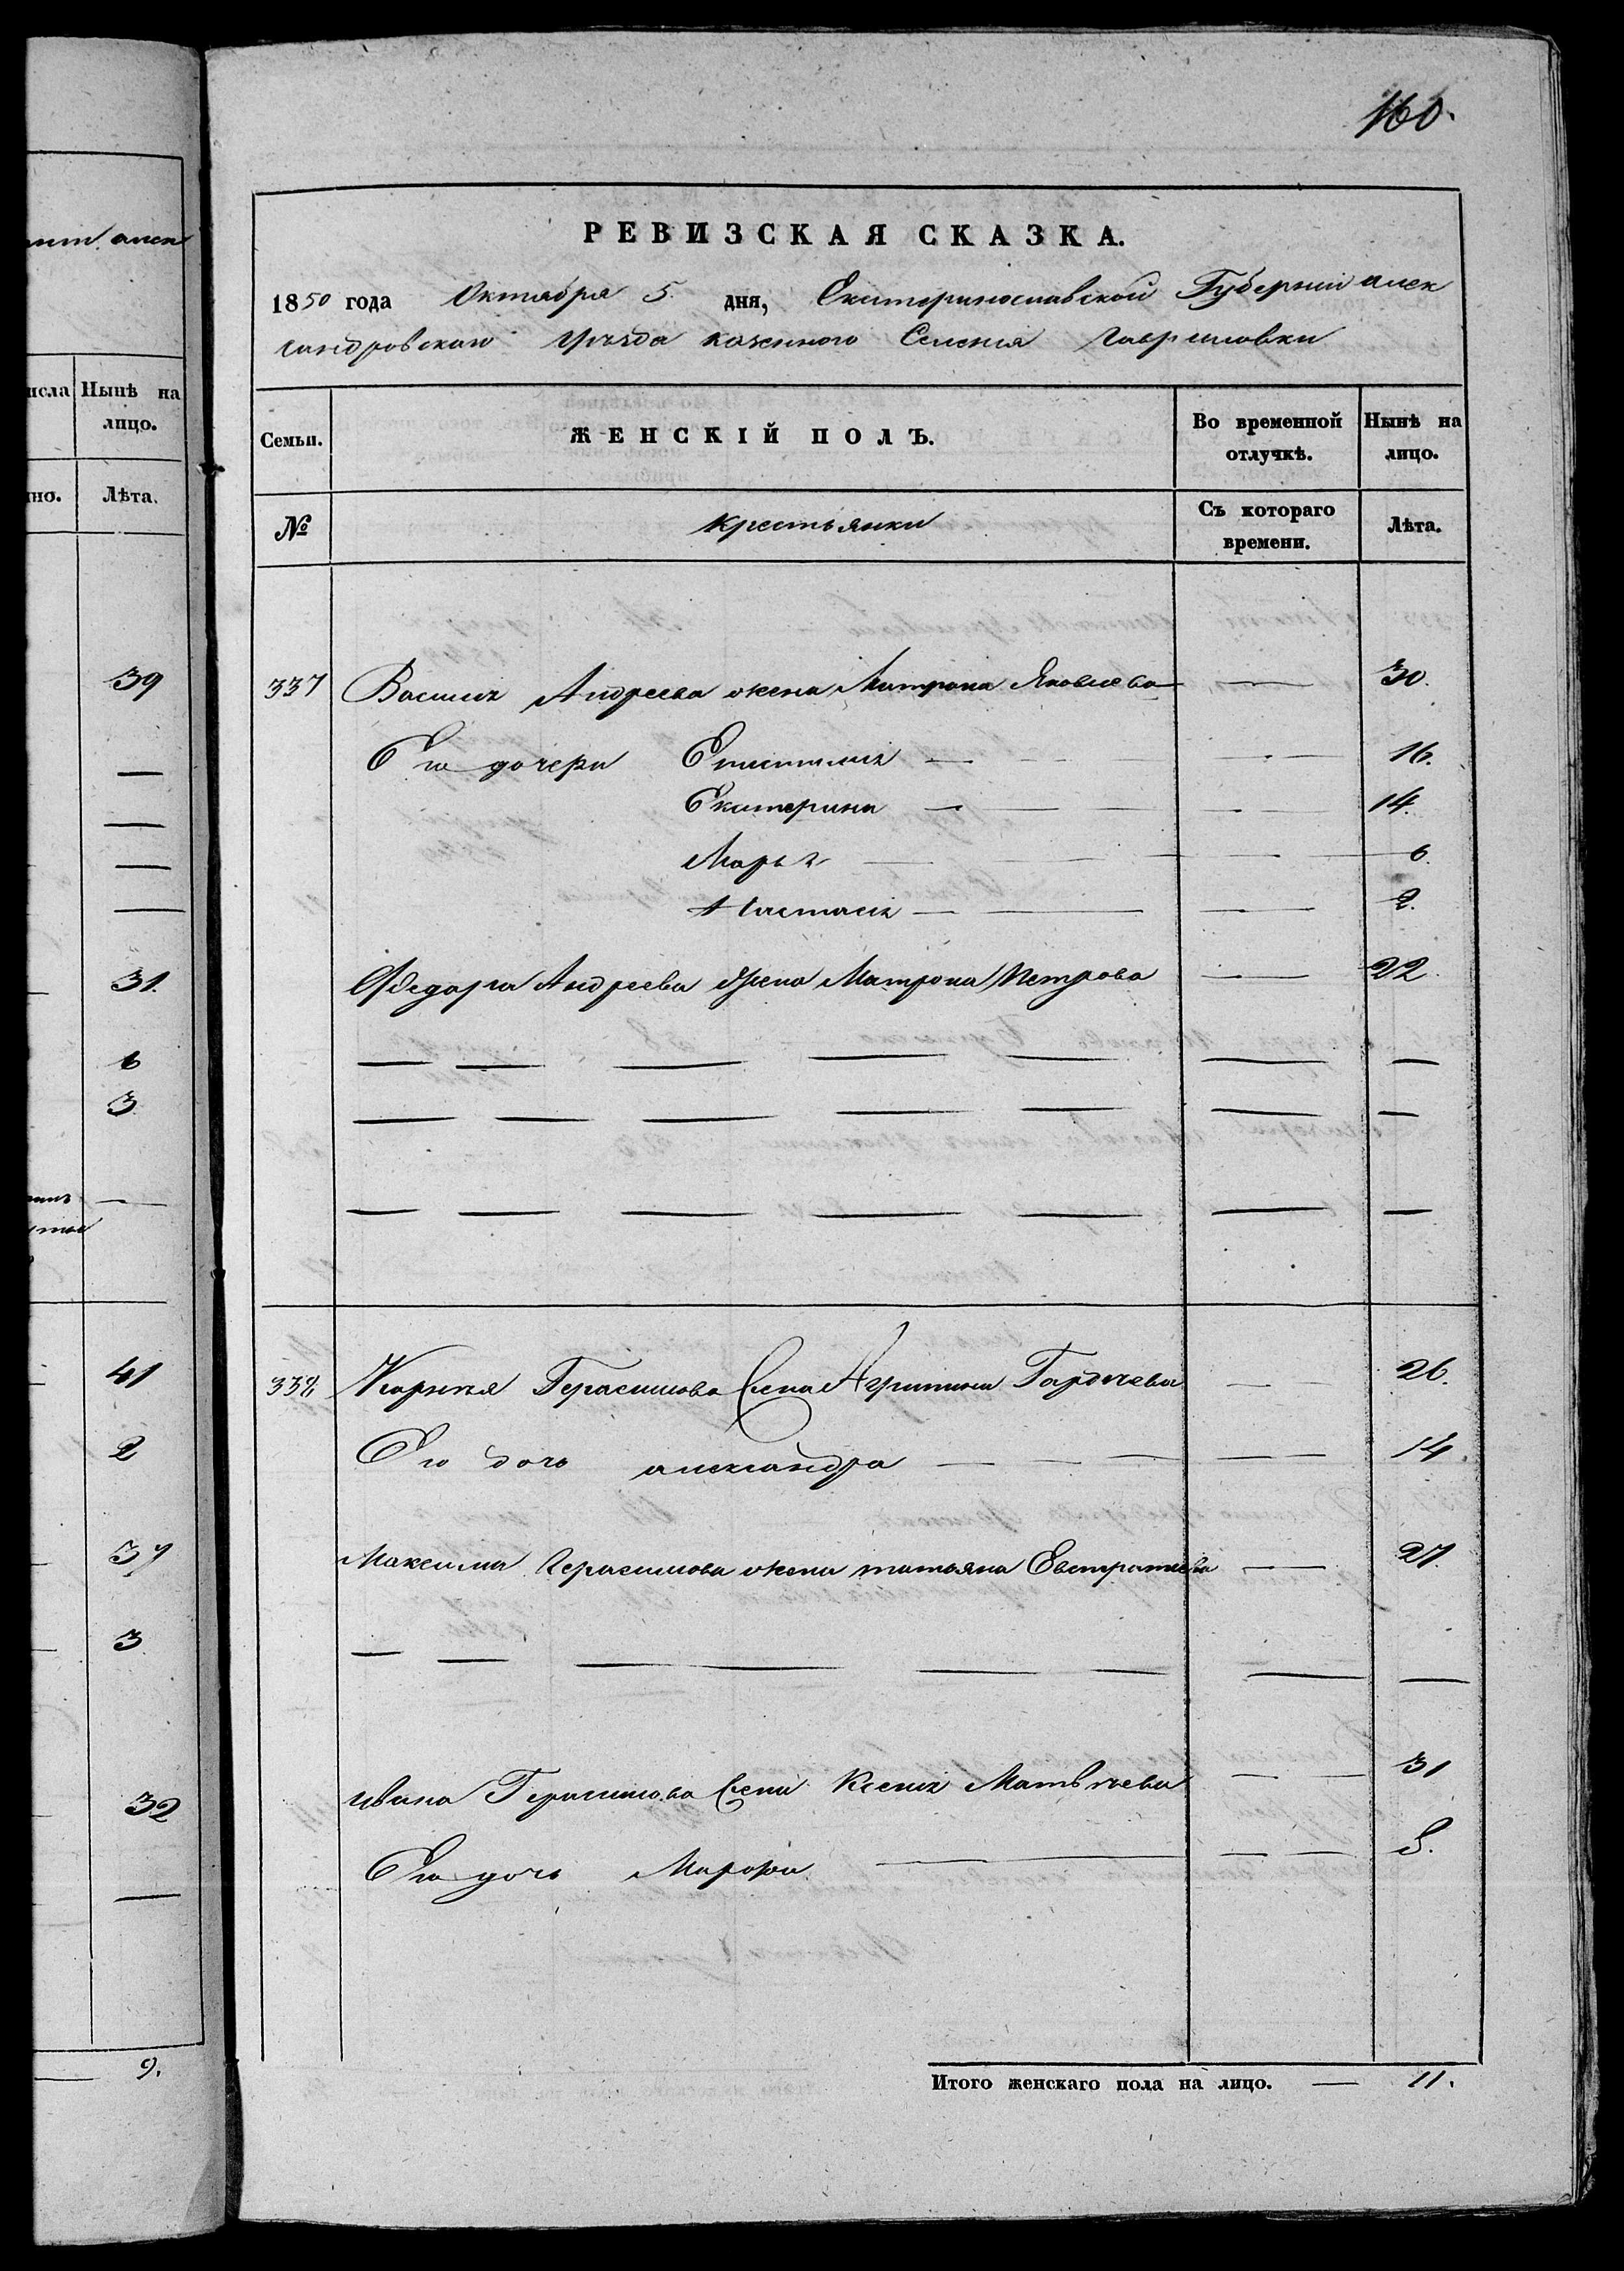 160.
РЕВИЗСКАЯ СКАЗКА.
1850 года Октября 5. дня, Екатеринославской Губерніи алек
сандровскаго уѣзда казенного Селенія Гавриловки
Семьи.
ЖЕНСКІЙ ПОЛЪ.
Во временной отлучкѣ.
Нынѣ на лицо.
№
крестьянки
Съ котораго времени.
Лѣта.
337 Василия Андреева жена Матрона Яковлева — 30.
Его дочери Епистимия — 16.
Екатерина — 14.
Марья — 6.
Настасия — 2.
Федора Андреева жена Матрона Петрова — 22
338 Герасимова жена Агрипина Гордеева — 26.
Его дочь александра — 14.
Максима Герасимова жена татьяна Евстратиева — 27.
ивана Герасимова жена Ксения Матвѣева — 31
Его дочь Марфа — 5.
Итого женскаго пола на лицо. — 11.
исла
Нынѣ на
лицо.
но.
Лѣта.
39
31.
6
3
41
2
37
3
32
9.